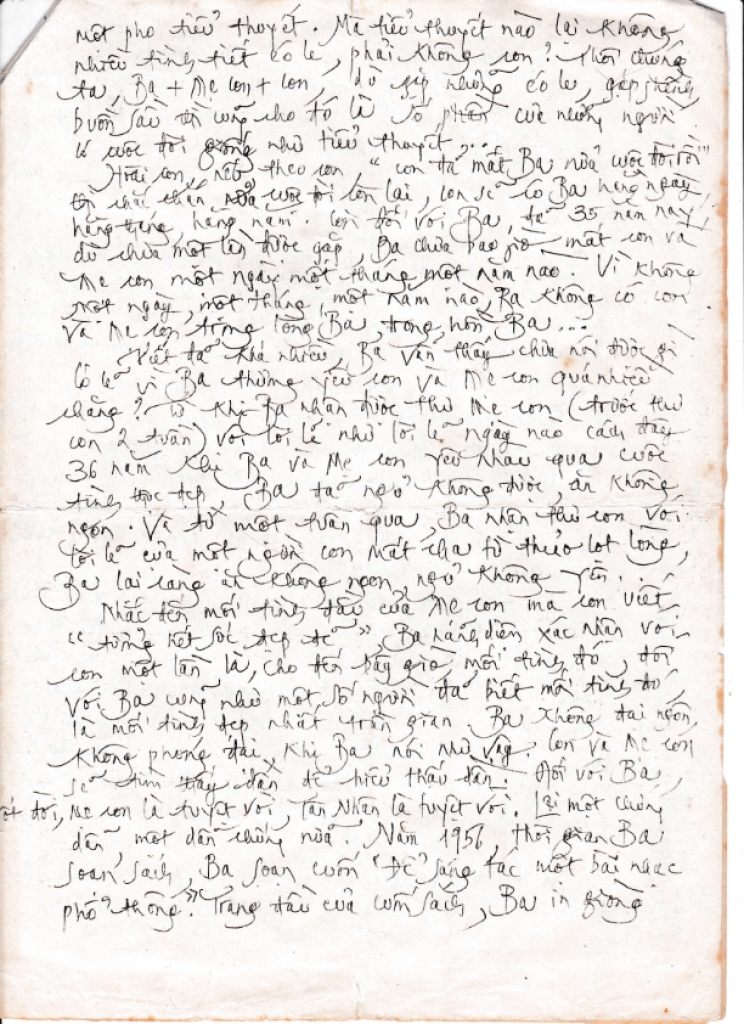 một pho tiểu thuyết. Mà tiểu thuyết nào lại không
nhiều tình tiết éo le, phải không con? Thôi chúng
ta, Ba + Mẹ con + con, dù gặp những éo le, gặp những
buồn sầu thì cũng cho đó là số phần của những người
có cuộc đời giống như tiểu thuyết...
Hoài con, nếu theo con, "con đã mất Ba nửa cuộc đời rồi"
thì chắc chắn nửa cuộc đời còn lại, con sẽ có Ba hàng ngày,
hàng tháng, hàng năm. Còn đối với Ba, đã 35 năm nay,
dù chưa một lần được gặp, Ba chưa bao giờ mất con và
Mẹ con một ngày một tháng một năm nào. Vì không
một ngày, một tháng, một năm nào, Ba không có con
và Mẹ con trong lòng Ba, trong hồn Ba...
Viết đã khá nhiều, Ba vẫn thấy chưa nói được gì
có lẽ vì Ba thương yêu con và Mẹ con quá nhiều
chăng? Từ khi Ba nhận được thư Mẹ con (trước thư
con 2 tuần) với lời lẽ như lời lẽ ngày nào cách đây
36 năm khi Ba và Mẹ con yêu nhau qua cuộc
tình tuyệt đẹp, Ba đã ngủ không được, ăn không
ngon. Và từ một tuần qua, Ba nhận thư con với
lời lẽ của một người con mất cha từ thuở lọt lòng,
Ba lại càng ăn không ngon, ngủ không yên...
Nhắc đến mối tình đầu của Mẹ con mà con viết
"từng kết sóc đẹp đẽ", Ba hãnh diện xác nhận với
con một lần là, cho đến bây giờ, mối tình đó, đối
với Ba cũng như một số người đã biết mối tình đó,
là mối tình đẹp nhất trần gian. Ba không đại ngôn,
không phóng đại, khi Ba nói như vậy. Con và Mẹ con
sẽ tìm thấy dần để hiểu thấu dần. Đối với Ba,
ốt đời, Mẹ con là tuyệt vời, Tân Nhân là tuyệt vời. Lại một chứng
dẫn, một dẫn chứng nữa. Năm 1956, thời gian Ba
soạn sách, Ba soạn cuốn "Để sáng tác một bài nhạc
phổ thông". Trang đầu của cuốn sách, Ba in giòng